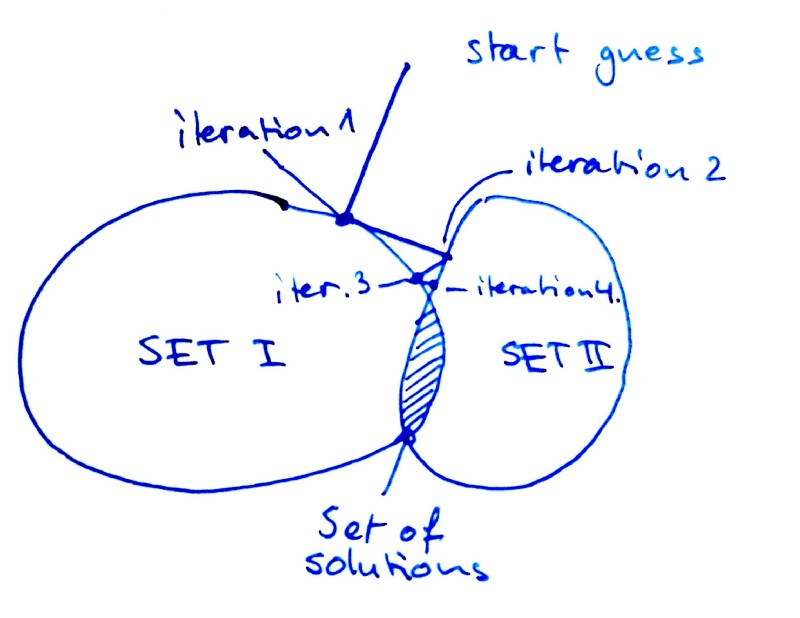 start guess
iteration 1
iteration 2
iter.3
iteration 4.
SET I
SET II
Set of
solutions